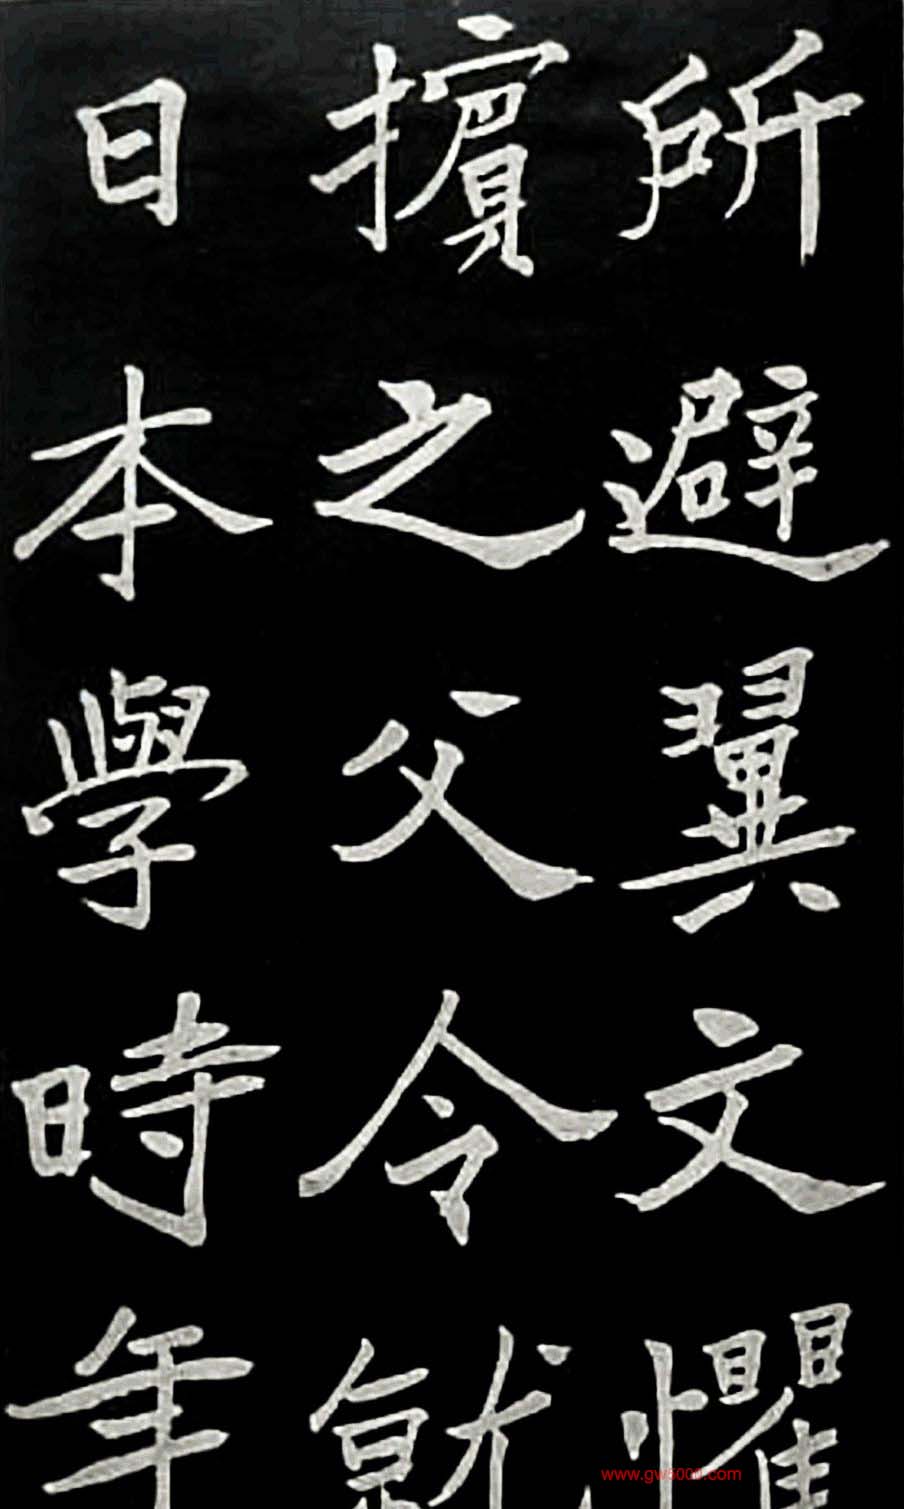 所避翼文懼
擯之父令就
日本學時年